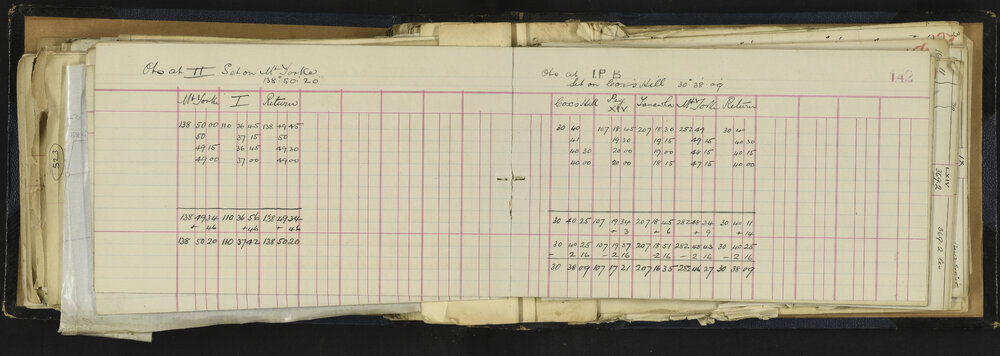 Obs at II Set on Mt Yorke
138° 50' 20"
Mt Yorke I Return
138 50 00 110 36 45 138 49 45
50 37 15 50
49 15 36 45 49 30
49 00 37 00 49 00
138 49 34 110 36 56 138 49 34
+ 46 +46 + 46
138 50 20 110 37 42 138 50 20
Obs at I.P. B
Set on Cox's Hill 30° 38' 09"
142
Cox's Hill Peg XIV Mt Yorke Return
30 40 107 18 45 207 18 30 282 49 30 40
41 19 30 19 15 49 15 40 30
40 30 20 00 19 00 48 15 40 15
40 00 20 00 18 15 47 15 40 00
30 40 25 107 19 34 207 18 45 282 48 34 30 40 11
+ 3 + 6 + 9 + 14
30 40 25 107 19 37 207 18 51 282 48 43 30 40 25
- 2 16 - 2 16 - 2 16 - 2 16 - 2 16
30 38 09 107 17 21 207 16 35 282 46 27 30 38 09
523
LXIV
3692